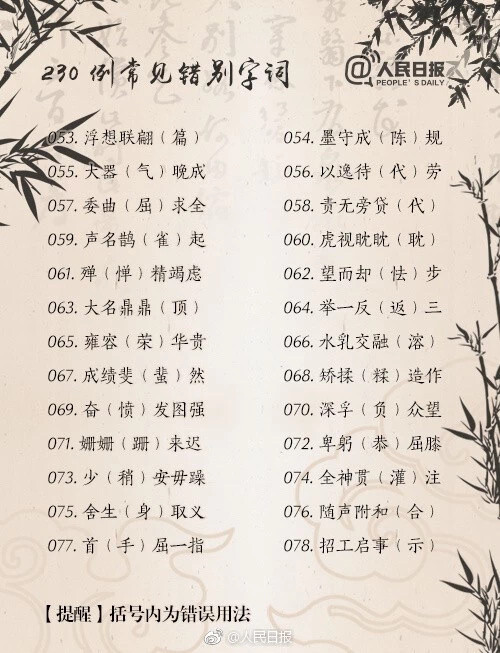 230例常见错别字词
@人民日报
PEOPLE'S DAILY
053. 浮想联翩（篇） 054. 墨守成（陈）规
055. 大器（气）晚成 056. 以逸待（代）劳
057. 委曲（屈）求全 058. 责无旁贷（代）
059. 声名鹊（雀）起 060. 虎视眈眈（耽）
061. 殚（惮）精竭虑 062. 望而却（怯）步
063. 大名鼎鼎（顶） 064. 举一反（返）三
065. 雍容（荣）华贵 066. 水乳交融（溶）
067. 成绩斐（蜚）然 068. 矫揉（糅）造作
069. 奋（愤）发图强 070. 深孚（负）众望
071. 姗姗（跚）来迟 072. 卑躬（恭）屈膝
073. 少（稍）安毋躁 074. 全神贯（灌）注
075. 舍生（身）取义 076. 随声附和（合）
077. 首（手）屈一指 078. 招工启事（示）
【提醒】括号内为错误用法
@人民日报